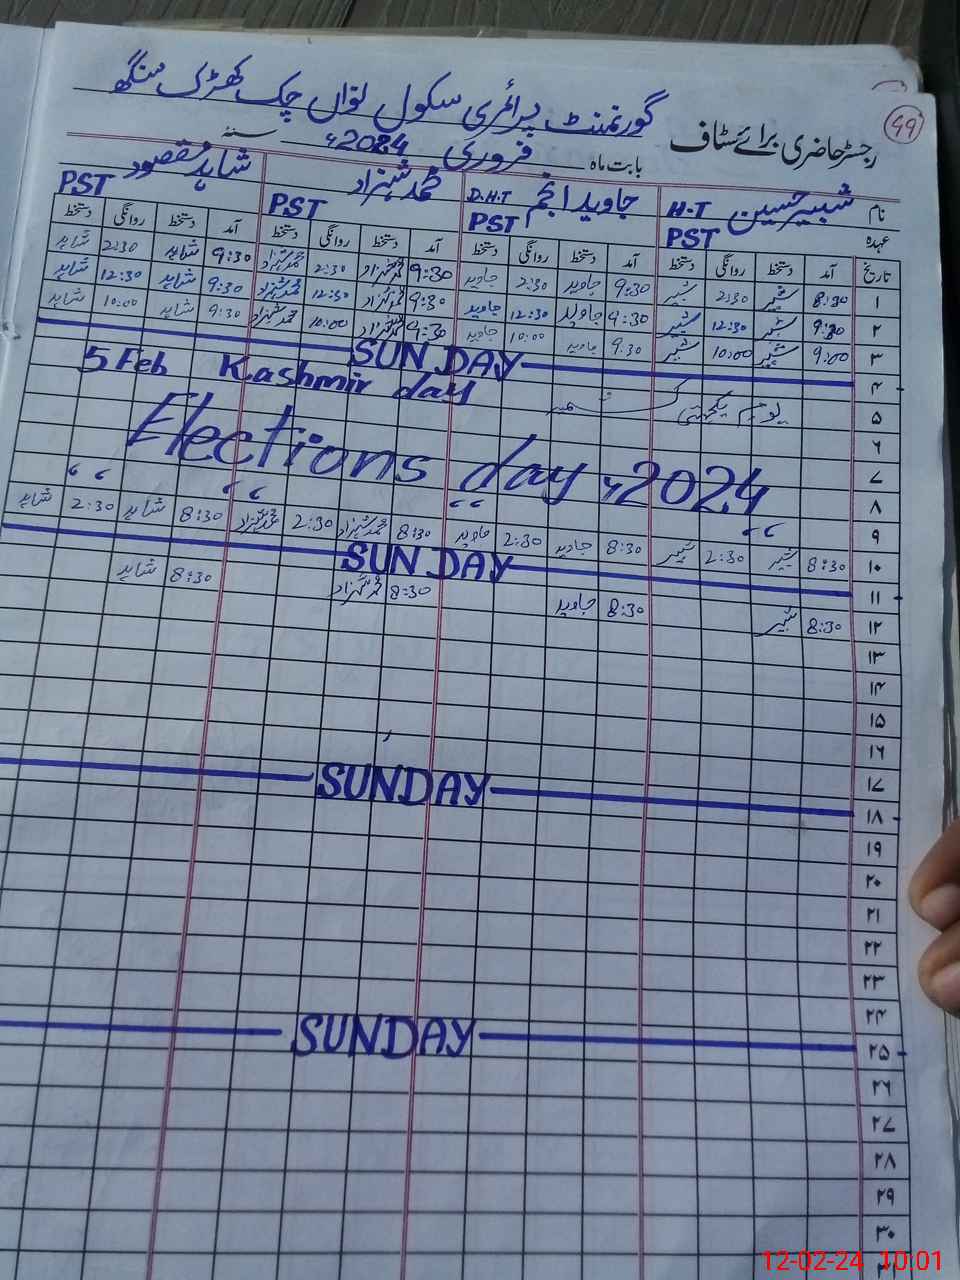 49
گورنمنٹ پرائمری سکول نواں چک کھڑک سنگھ
رجسٹر حاضری برائے سٹاف
بابت ماہ فروری 2024ء سنہ
نام شبیر حسین جاوید انجم محمد شہزاد شاہد مقصود
عہدہ H.T PST D.H.T PST PST PST
تاریخ آمد دستخط روانگی دستخط آمد دستخط روانگی دستخط آمد دستخط روانگی دستخط آمد دستخط روانگی دستخط
۱ 8:30 شبیر 2:30 شبیر 9:30 جاوید 2:30 جاوید 9:30 محمد شہزاد 2:30 محمد شہزاد 9:30 شاہد 2:30 شاہد
۲ 9:30 شبیر 12:30 شبیر 9:30 جاوید 12:30 جاوید 9:30 محمد شہزاد 12:30 محمد شہزاد 9:30 شاہد 12:30 شاہد
۳ 9:00 شبیر 10:00 شبیر 9:30 جاوید 10:00 جاوید 9:30 محمد شہزاد 10:00 محمد شہزاد 9:30 شاہد 10:00 شاہد
۴ SUNDAY
۵ یوم یکجہتی کشمیر 5 Feb Kashmir day
۶
۷ Elections day 2024ء
۸
۹ “ “ “ “
۱۰ 8:30 شبیر 2:30 شبیر 8:30 جاوید 2:30 جاوید 8:30 محمد شہزاد 2:30 محمد شہزاد 8:30 شاہد 2:30 شاہد
۱۱ SUNDAY
۱۲ 8:30 شبیر 8:30 جاوید 8:30 محمد شہزاد 8:30 شاہد
۱۳
۱۴
۱۵
۱۶
۱۷
۱۸ SUNDAY
۱۹
۲۰
۲۱
۲۲
۲۳
۲۴
۲۵ SUNDAY
۲۶
۲۷
۲۸
۲۹
۳۰
12-02-24 10:01